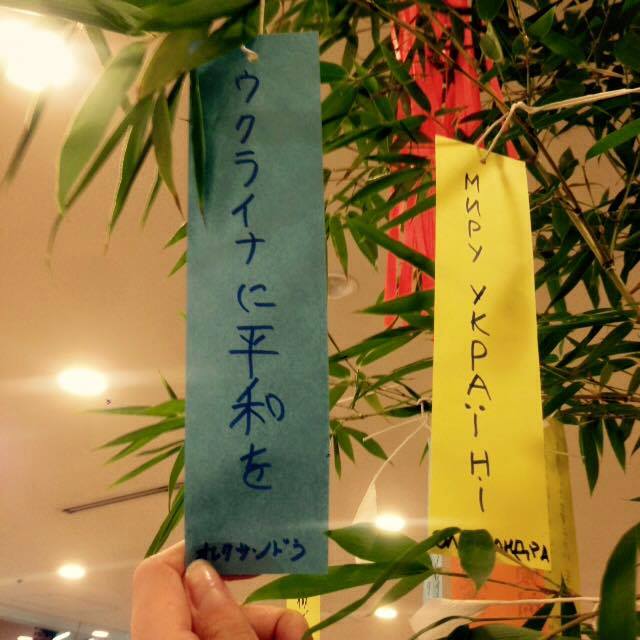 ウクライナに平和を
オレクサンドラ
МИРУ УКРАЇНІ